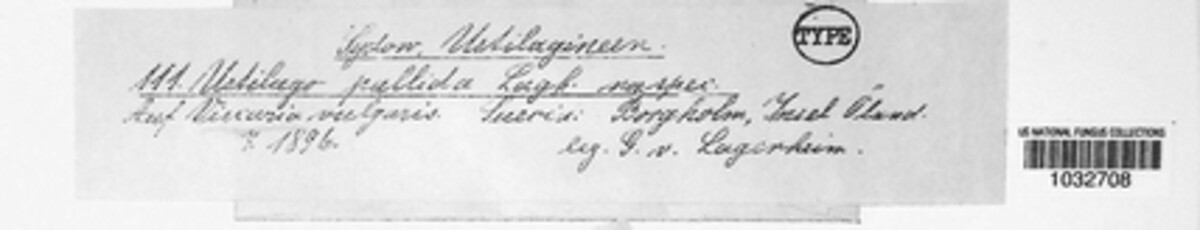 Sydow, Ustilagineen.
TYPE
111. Ustilago pallida Lagh. n. spec.
Auf Viscaria vulgaris. Suecia: Borgholm, Insel Öland.
7. 1896. leg. G. v. Lagerheim.
US NATIONAL FUNGUS COLLECTIONS
1032708